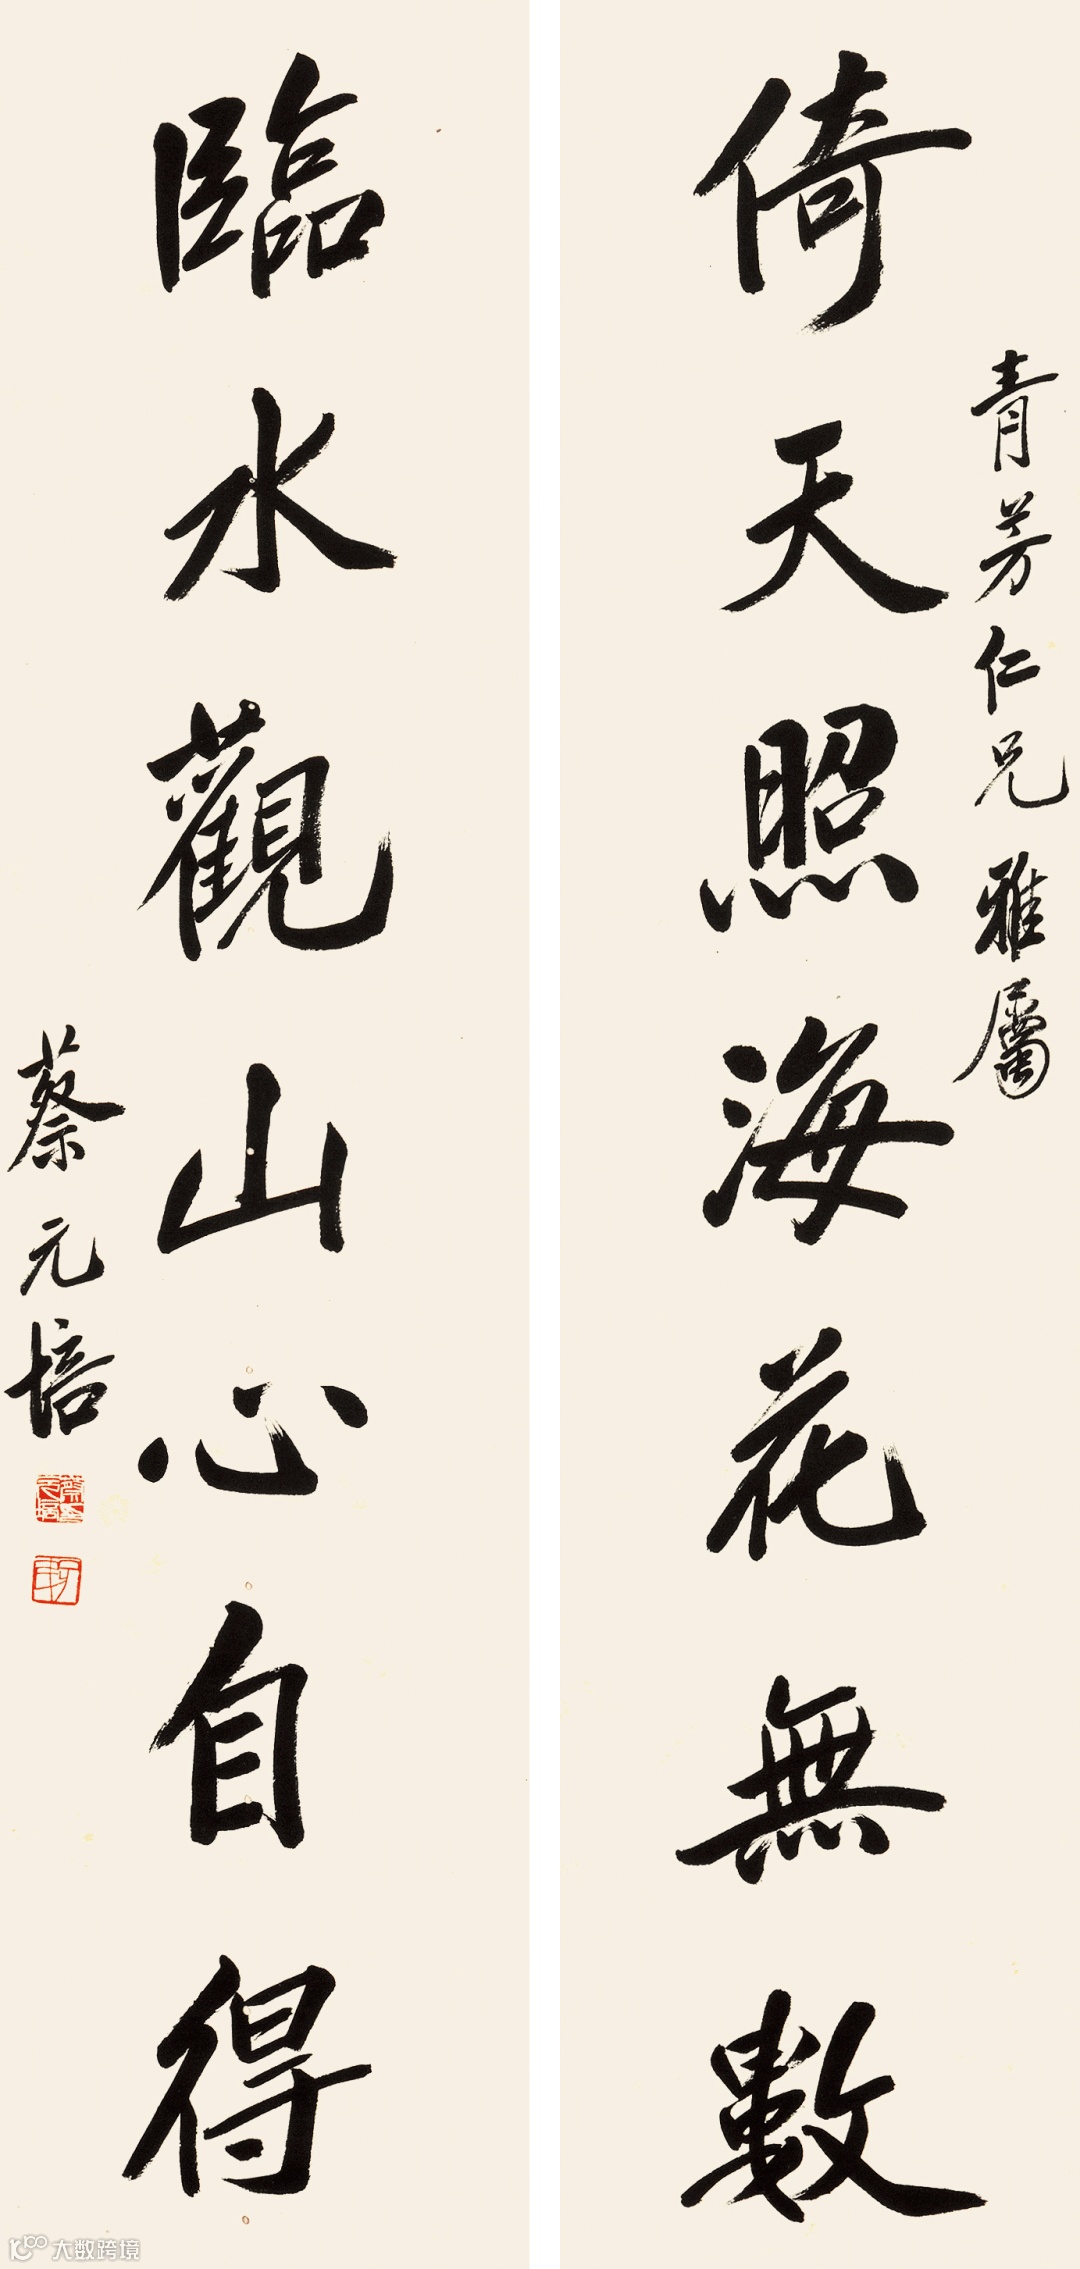 青芳仁兄雅屬
倚天照海花無數
臨水觀山心自得
蔡元培
大数跨境